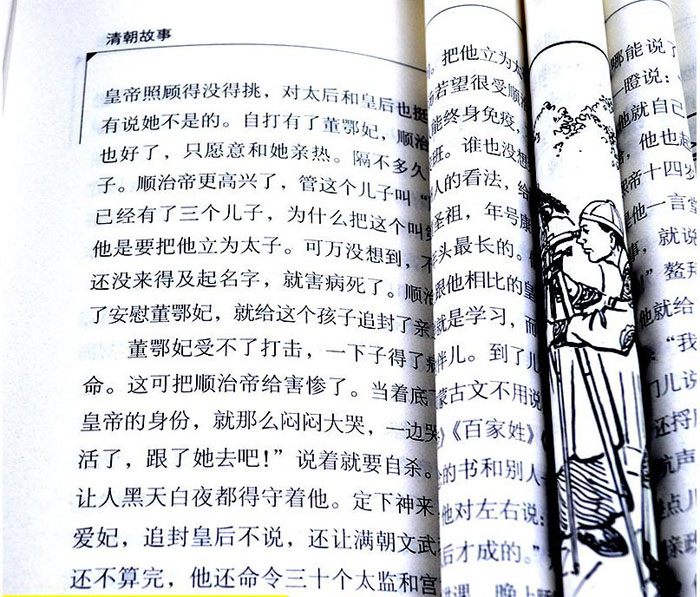 清朝故事
皇帝照顾得没得挑，对太后和皇后也挺
有说她不是的。自打有了董鄂妃，顺治
也好了，只愿意和她亲热。隔不多久
子。顺治帝更高兴了，管这个儿子叫“
已经有了三个儿子，为什么把这个叫
他是要把他立为太子。可万没想到，
还没来得及起名字，就害病死了。顺治
了安慰董鄂妃，就给这个孩子追封了亲
董鄂妃受不了打击，一下子得了
命。这可把顺治帝给害惨了。当着底
皇帝的身份，就那么闷闷大哭，一边哭
活了，跟了她去吧！”说着就要自杀。
让人黑天白夜都得守着他。定下神来
爱妃，追封皇后不说，还让满朝文武
还不算完，他还命令三十个太监和宫
。把他立为太
若望很受顺
能终身免疫，
班。谁也没想
人的看法，给
圣祖，年号康
头最长的。
跟他相比的皇
就是学习，而
伴儿。到了儿
蒙古文不用说
》《百家姓》《
的书和别人
他对左右说：
后才成的。”
课，晚上
哪能说了
瞪说：
他就自己
，他也起
帝十四岁
是他一言堂
事，就说
！”鳌拜
他就给
：“我
门儿说
还捋
声
点儿
亲政